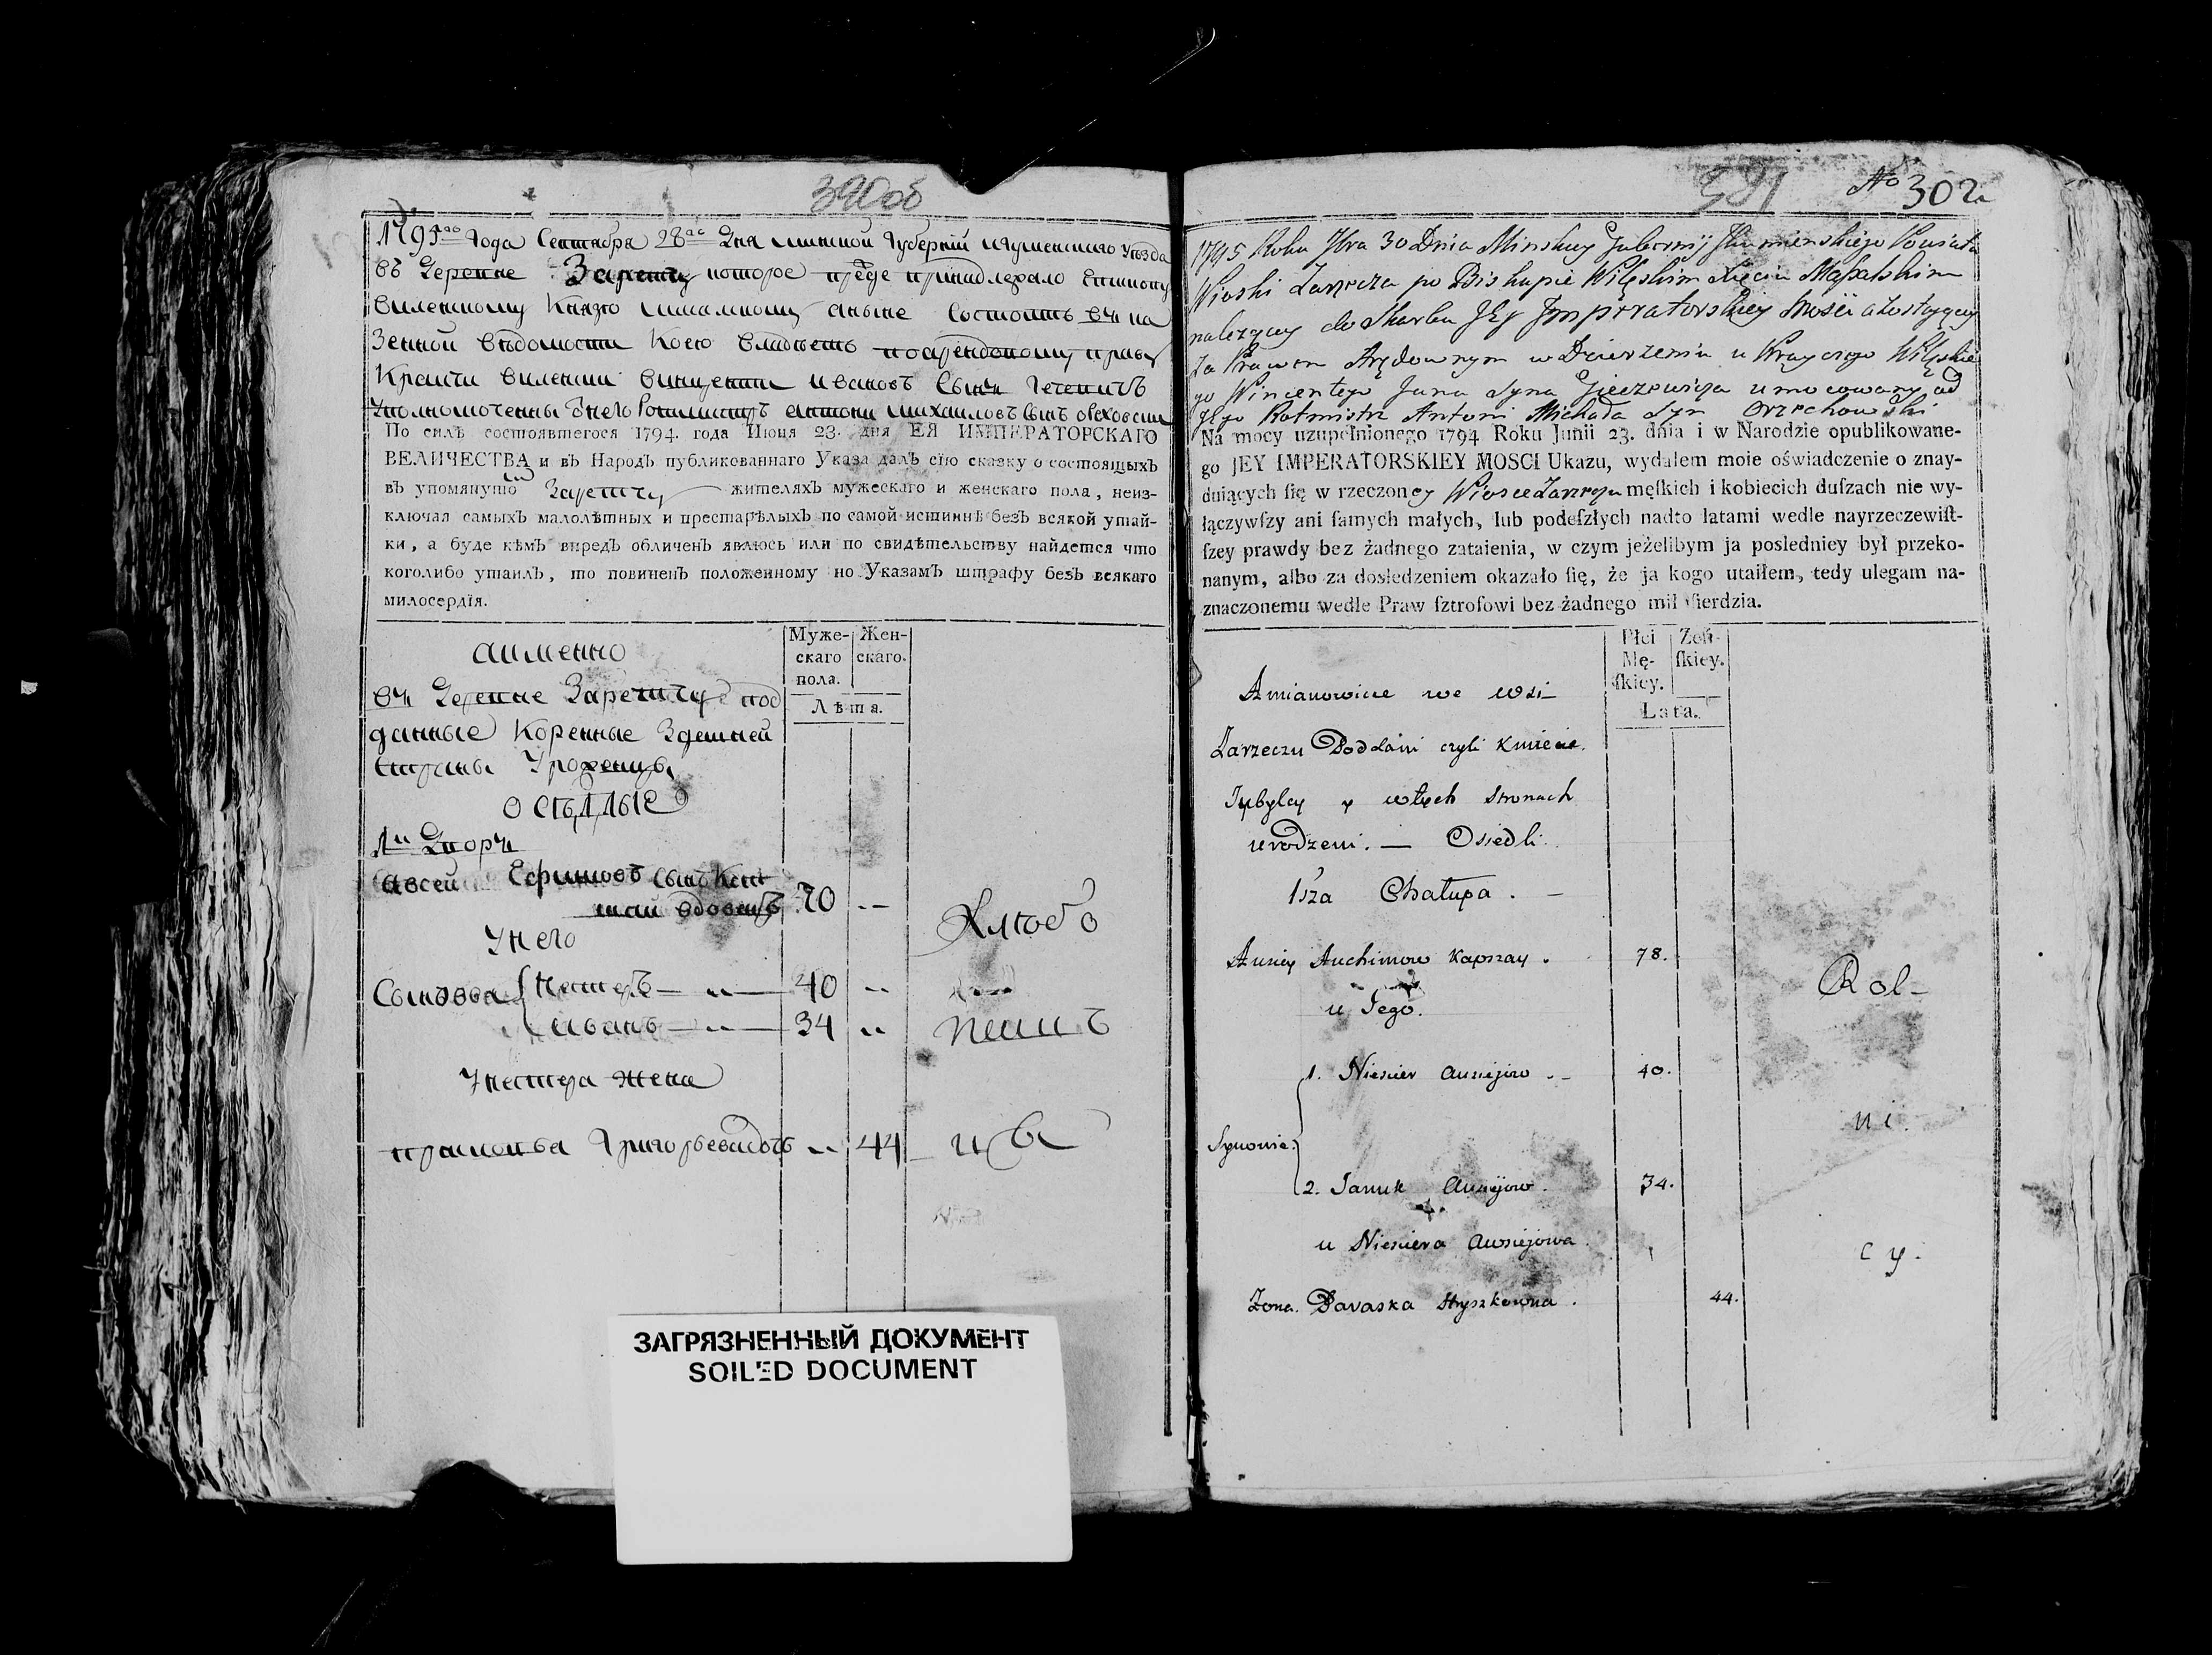 1795го Года Сентября 28го Дня минской Губернiи игуменскаго уѣзда
въ Деревне Зареччу которое прежде принадлежало епископу
виленскому Князю масалскому аныне Состоитъ въ ка
Зенной вѣдомости Коею владѣетъ поарендовому праву
Крайчи виленски винценти ивановъ Сынъ
Уполномоченны Ротмистръ антони михаиловъ Сынъ ореховски
По силѣ состоявшегося 1794. года Июня 23. дня ЕЯ ИМПЕРАТОРСКАГО
ВЕЛИЧЕСТВА и въ Народъ публикованнаго Указа далъ сїю сказку о состоящыхъ
въ упомянуто Зареччу жителяхъ мужескаго и женскаго пола, неиз-
ключая самыхъ малолѣтныхъ и престарѣлыхъ по самой истиннѣ безъ всякой утай-
ки, а буде кѣмъ впредъ обличенъ явлюсь или по свидѣтельству найдется что
коголибо утаилъ, то повиненъ положенному по Указамъ штрафу безъ всякаго
милосердїя.
аименно
Муже-
скаго
пола.
Жен-
скаго.
Лѣта.
въ Деревне Зареччу под
данные Коренные Здешней
стораны Уроженцы
осѣдлые
1й Дворъ
авсей Ефимовъ сынъ
вдовецъ 70 --
Унего
Хлѣбо
Сыновья Нестеръ — 40 --
иванъ — 34 --
пашъ
Унестера жена
прасковья Григорьева дочь -- 44
цы
321 No 302
1795 Roku 7bra 30 Dnia Minskiey Gubernij Ihumienskiego Powiatu
Wioski Zarzecza po Biskupie Wileskim Xięciu Massalskim
należący do Skarbu JEy Imperatorskiey Mości
za Prawem Arędownym w Dzierżeniu u Krayczego Wileskie
go Wincentego Jana Syna Gieczewicza umocowany od
JEgo Rotmistrz Antoni Michała Syn Orzechowski
Na mocy uzupełnionego 1794 Roku Junii 23. dnia i w Narodzie opublikowane-
go JEY IMPERATORSKIEY MOSCI Ukazu, wydałem moie oświadczenie o znay-
duiących ſię w rzeczoney Wiosce Zarzeczu męſkich i kobiecich duſzach nie wy-
łączywſzy ani ſamych małych, lub podeſzłych nadto latami wedle nayrzeczewiſt-
ſzey prawdy bez żadnego zataienia, w czym jeżelibym ja posledniey był przeko-
nanym, albo za dosledzeniem okazało ſię, że ja kogo utaiłem, tedy ulegam na-
znaczonemu wedle Praw ſztrofowi bez żadnego miłoſierdzia.
Płci
Mę-
ſkiey.
Żeń-
ſkiey.
Lata.
Amianowicie we wsi
Zarzeczu Poddani czyli kmiecie.
Tubylcy y wtych stronach
urodzeni. — Osiedli.
1sza Chałupa. —
Ausiey Auchimow Kapszay. 78.
u Jego.
Rol-
1. Niesцier Ausiejow. - 40.
ni.
Synowie.
2. Januk Ausiejow. 34.
u Niesciera Ausiejowa.
cy.
Żona. Paraska Hryszkowna. 44.
ЗАГРЯЗНЕННЫЙ ДОКУМЕНТ
SOILED DOCUMENT